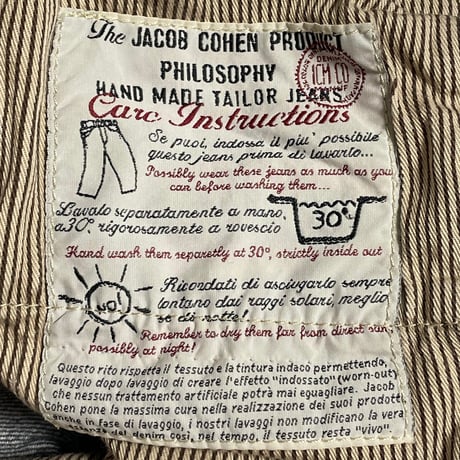 The JACOB COHEN PRODUCT
PHILOSOPHY
HAND MADE TAILOR JEANS
Care Instructions
Se puoi, indossa il piu' possibile
questo jeans prima di lavarlo...
Possibly wear these jeans as much as you
can before washing them...
Lavalo separatamente a mano,
a 30°, rigorosamente a rovescio
30°
Hand wash them separetly at 30°, strictly inside out
Ricordati di asciugarlo sempre
lontano dai raggi solari, meglio
se di notte!
NO!
Remember to dry them far from direct sun,
possibly at night!
Questo rito rispetta il tessuto e la tintura indaco permettendo,
lavaggio dopo lavaggio di creare l'effetto "indossato" (worn-out)
che nessun trattamento artificiale potrà mai eguagliare. Jacob
Cohen pone la massima cura nella realizzazione dei suoi prodotti,
anche in fase di lavaggio, i nostri lavaggi non modificano la vera
del denim così, nel tempo, il tessuto resta "vivo".